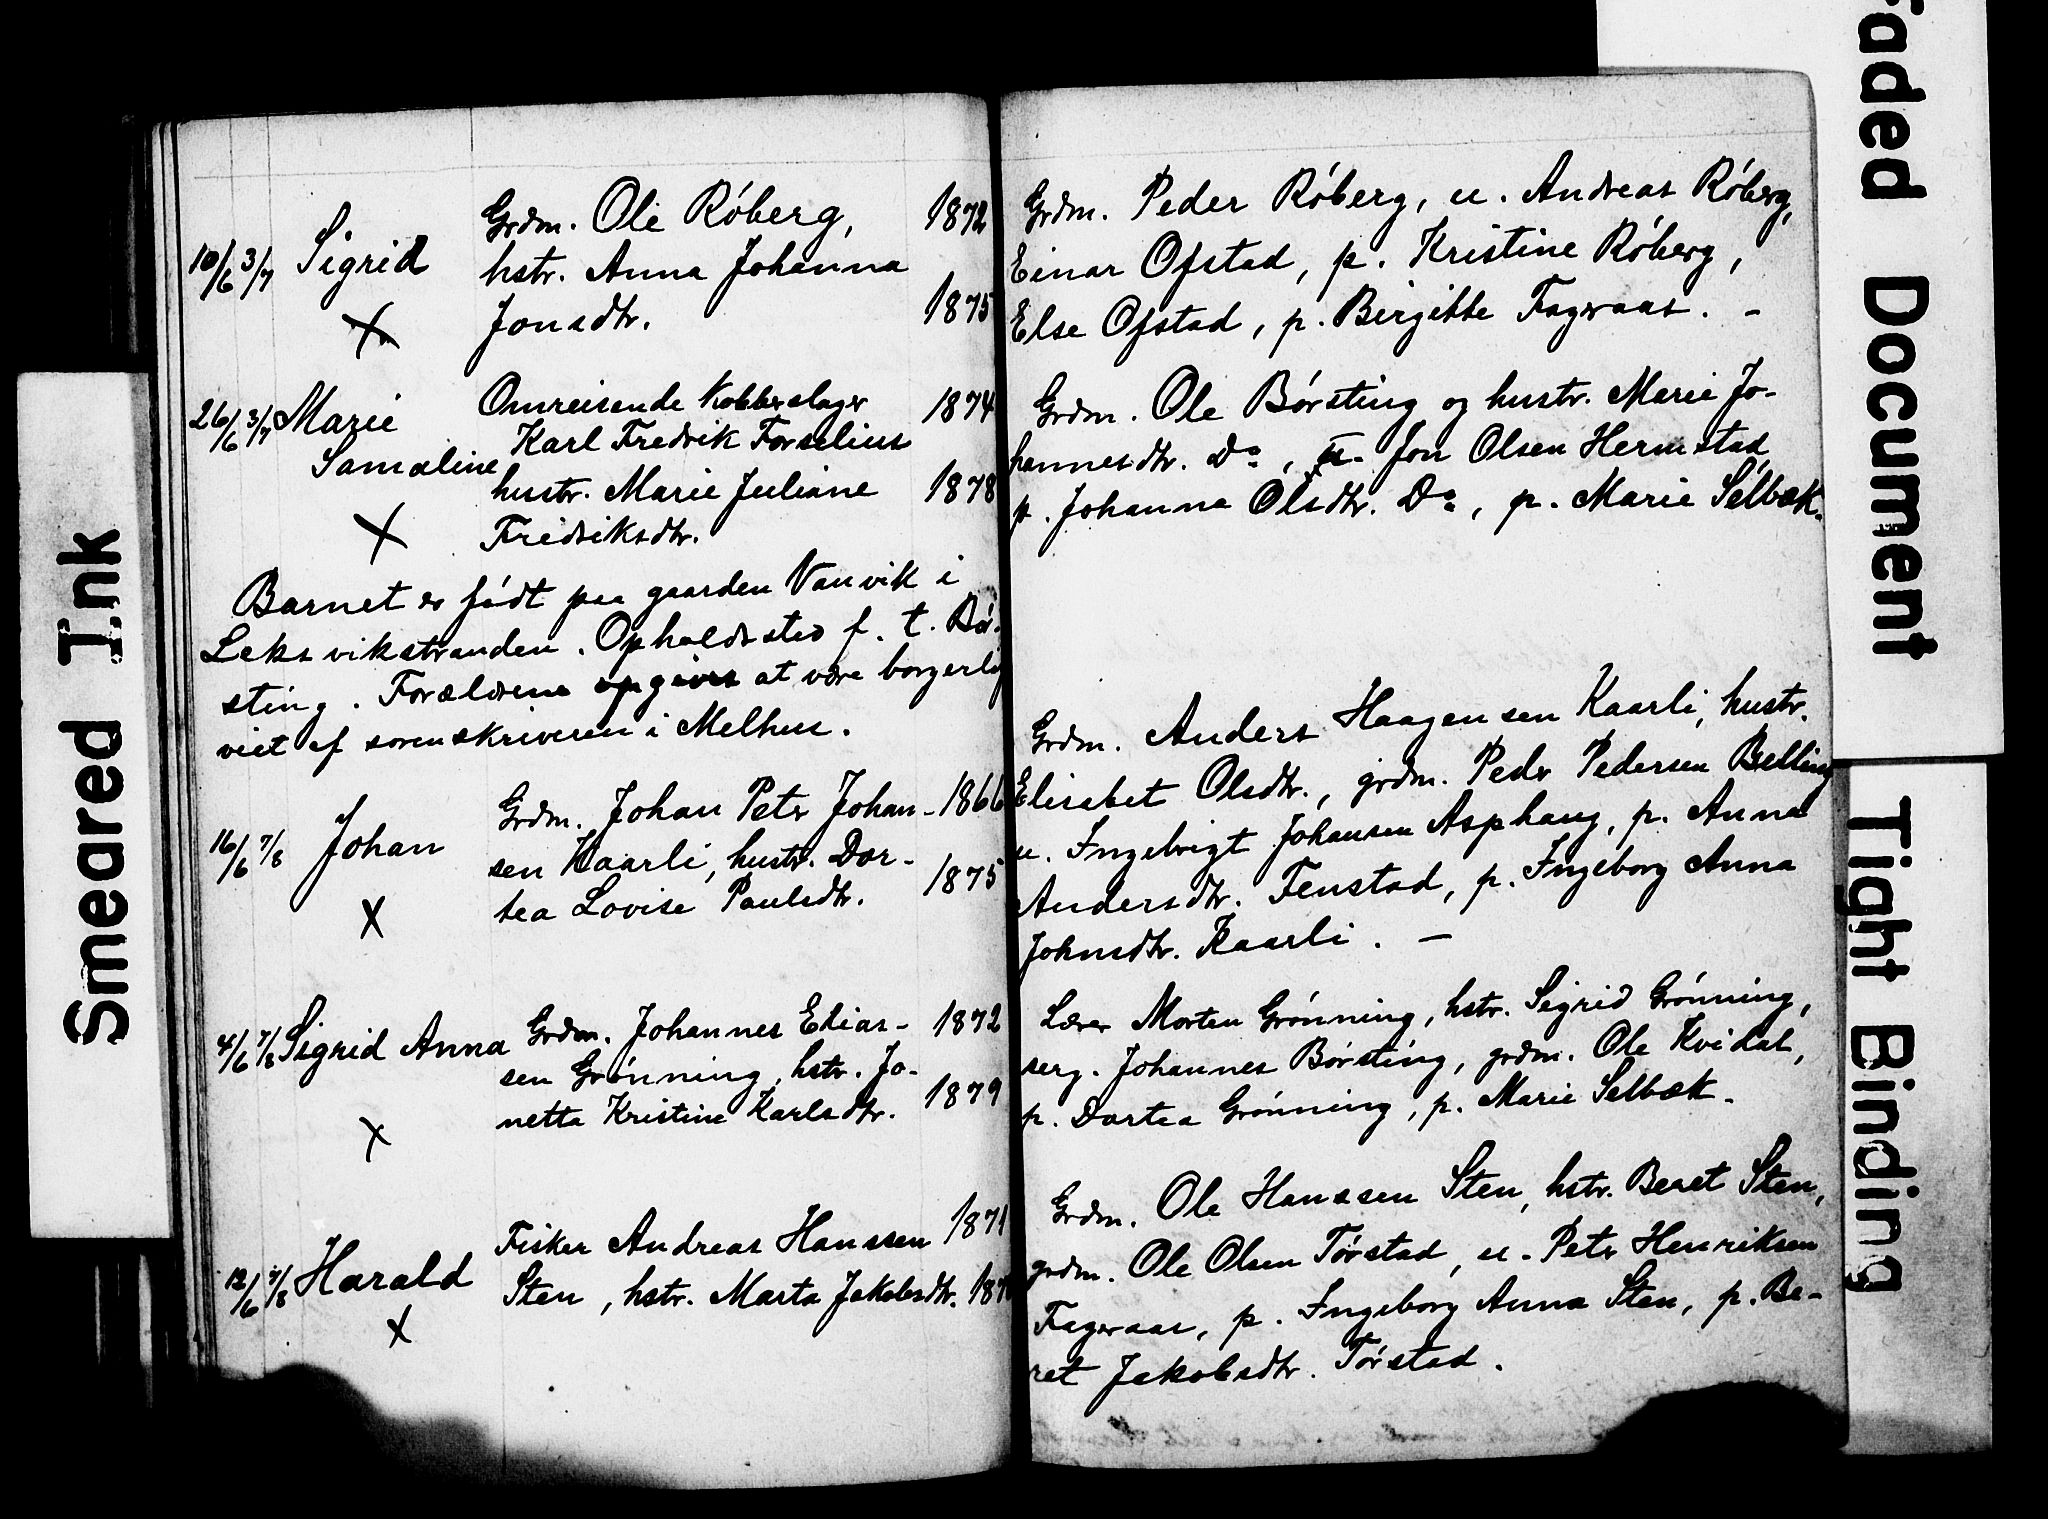 Grdm. Ole Róberg, 1872
10/6 3/7 Sigrid hstr. Anna Johanna
Jonsdtr. 1875
26/6 3/7 Marie Omreisende Kobberslager 1874
Samaline Karl Fredrik Forselius
hustr. Marie Juliane 1878
Fredriksdtr.
Barnet er fódt paa gaarden Vanvik i
Leksvikstranden. Opholdssted f. t. Bór-
sting. Forældrene opgives at være borgerlig
viet af sorenskriveren i Melhus.
Grdm. Johan Peter Johan- 1866
16/6 7/8 Johan sen Kaarli, hustr. Dor-
tea Lovise Paulsdtr. 1875
4/6 7/8 Sigrid Anna Grdm. Johannes Elias- 1872
sen Grónning, hstr. Jo-
netta Kristine Karlsdtr. 1879
Fisker Andreas Hanssen 1871
12/6 7/8 Harald Sten, hstr. Marta Jakobsdtr.
Grdm. Peder Róberg, u. Andreas Róberg,
Einar Ofstad, p. Kristine Róberg,
Else Ofstad, p. Birgitte Fageraas. -
Grdm. Ole Bórsting og hustr. Marie Jo-
hannesdtr. Do, u. Jon Olsen Hermstad
p. Johanna Olsdtr. Do, p. Marie Selbæk.
Grdm. Anders Haagensen Kaarli, hustr.
Elisabet Olsdtr., grdm. Peder Pedersen Belling
u. Ingebrigt Johansen Asphaug, p. Anna
Andersdtr. Fenstad, p. Ingeborg Anna
Johnsdtr. Kaarli. -
Lærer Morten Grónning, hstr. Sigrid Grónning,
serg. Johannes Bórsting, grdm. Ole Kvidal,
p. Dortea Grónning, p. Marie Selbæk.
Grdm. Ole Hanssen Sten, hstr. Beret Sten,
grdm. Ole Olsen Tórstad, u. Peter Henriksen
Fageraas, p. Ingeborg Anna Sten, p. Be-
ret Jakobsdtr. Tórstad.
Smeared Ink
Faded Document
Tight Binding